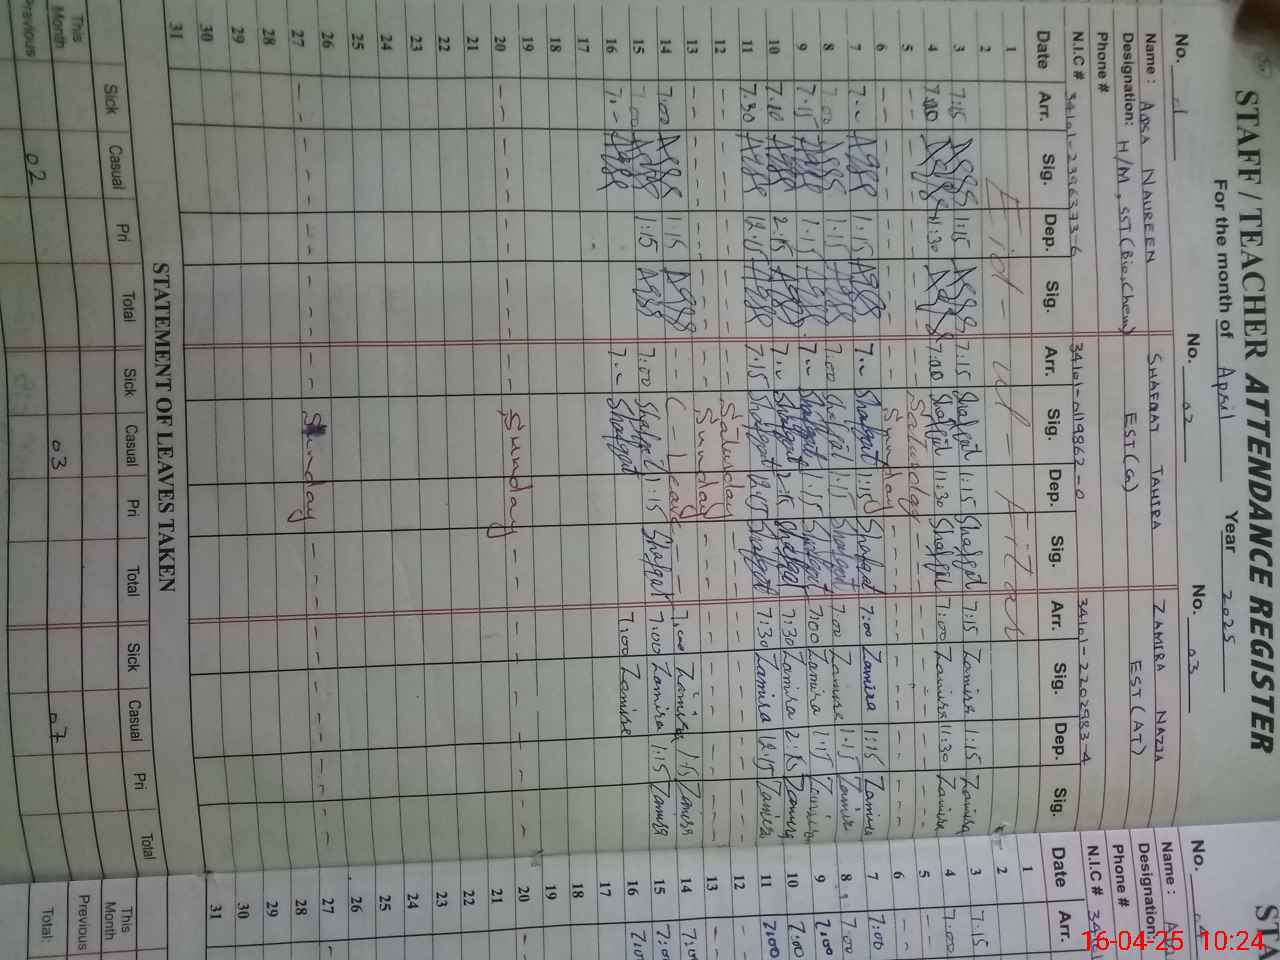 STAFF / TEACHER ATTENDANCE REGISTER
For the month of April Year 2025
No. 01 No. 02 No. 03
Name : AQSA NAUREEN SHAFQAT TAHIRA ZAMIRA NAZZA
Designation: H/M, SST(Bio,Chem) EST(G) EST(AT)
Phone #
N.I.C # 34101-2396373-6 34101-0119862-0 34101-2202983-4
Date Arr. Sig. Dep. Sig. Arr. Sig. Dep. Sig. Arr. Sig. Dep. Sig.
1
2 Eid - ul - Fitar
3 7:15 1:15 7:15 Shafqat 1:15 Shafqat 7:15 Zamira 1:15 Zamira
4 7:00 11:30 7:00 Shafqat 11:30 Shafqat 7:00 Zamira 11:30 Zamira
5 -- -- Saturday -- --
6 -- -- Sunday -- --
7 7.-- 1:15 7.-- Shafqat 1:15 Shafqat 7:00 Zamira 1:15 Zamira
8 7:00 1:15 7:00 Shafqat 1:15 Shafqat 7:00 Zamira 1:15 Zamira
9 7:15 1:15 7.-- Shafqat 1:15 Shafqat 7:00 Zamira 1:15 Zamira
10 2:15 7.-- Shafqat 2:15 Shafqat 7:30 Zamira 2:15 Zamira
11 7:30 12:15 7:15 Shafqat 12:15 Shafqat 7:30 Zamira 12:15 Zamira
12 -- -- Saturday -- --
13 -- -- Sunday -- --
14 7:00 1:15 -- C-Leave -- 7:00 Zamira 1:15 Zamira
15 7:00 1:15 7:00 Shafqat 1:15 Shafqat 7:00 Zamira 1:15 Zamira
16 7.-- 7.-- Shafqat 7:00 Zamira
17
18
19
20 -- -- Sunday -- --
21
22
23
24
25
26
27 -- -- Sunday -- --
28
29
30
31
STATEMENT OF LEAVES TAKEN
Sick Casual Pri Total Sick Casual Pri Total Sick Casual Pri Total
This Month
Previous 02 03 07
STA
No. 04
Name :
Designation:
Phone #
N.I.C # 34
Date Arr.
1
2
3 7:15
4 7:00
5 --
6 --
7 7:00
8 7:00
9 7:00
10 7:00
11 7:00
12
13
14 7:0
15 7:0
16 7:0
17
18
19
20
21
22
23
24
25
26
27
28
29
30
31
This Month
Previous
Total:
16-04-25 10:24